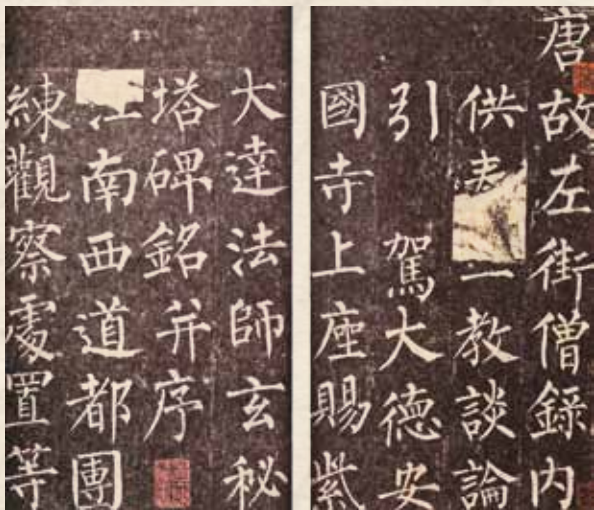 唐故左街僧錄內
供教談論
引 駕大德安
國寺上座賜紫
大達法師玄秘
塔碑銘并序
江南西道都團
練觀察處置等